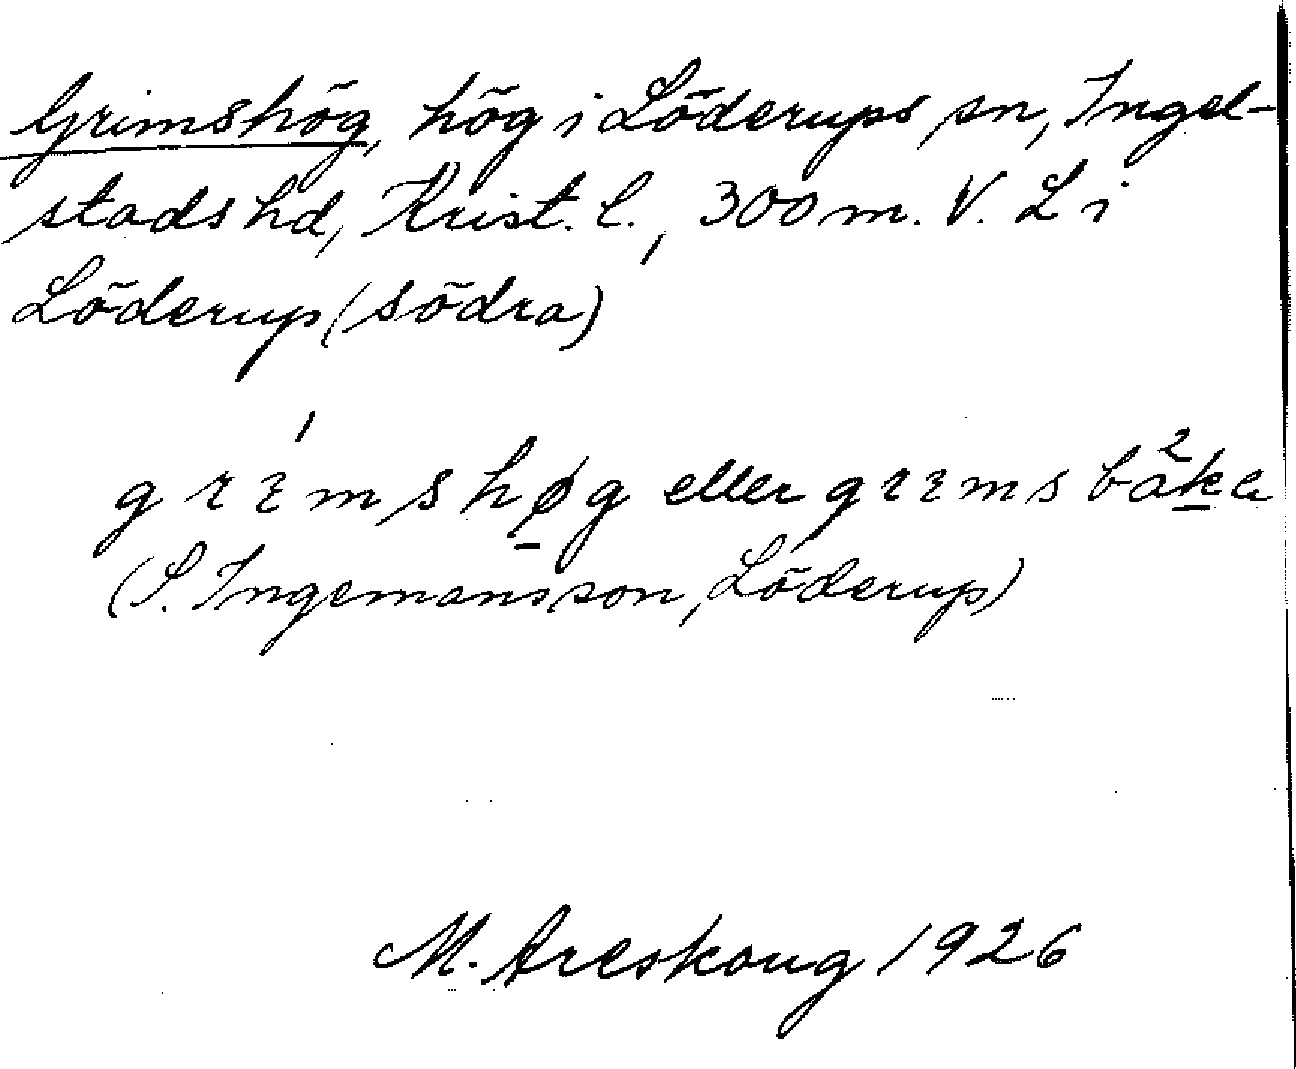 Grimshög, hög i Löderups sn, Ingel-
stads hd, Krist. l., 300 m. V. L i
Löderup (södra)
grímshø̱g eller grimsbå²ḵa
(S. Ingemansson, Löderup)
M. Areskoug 1926